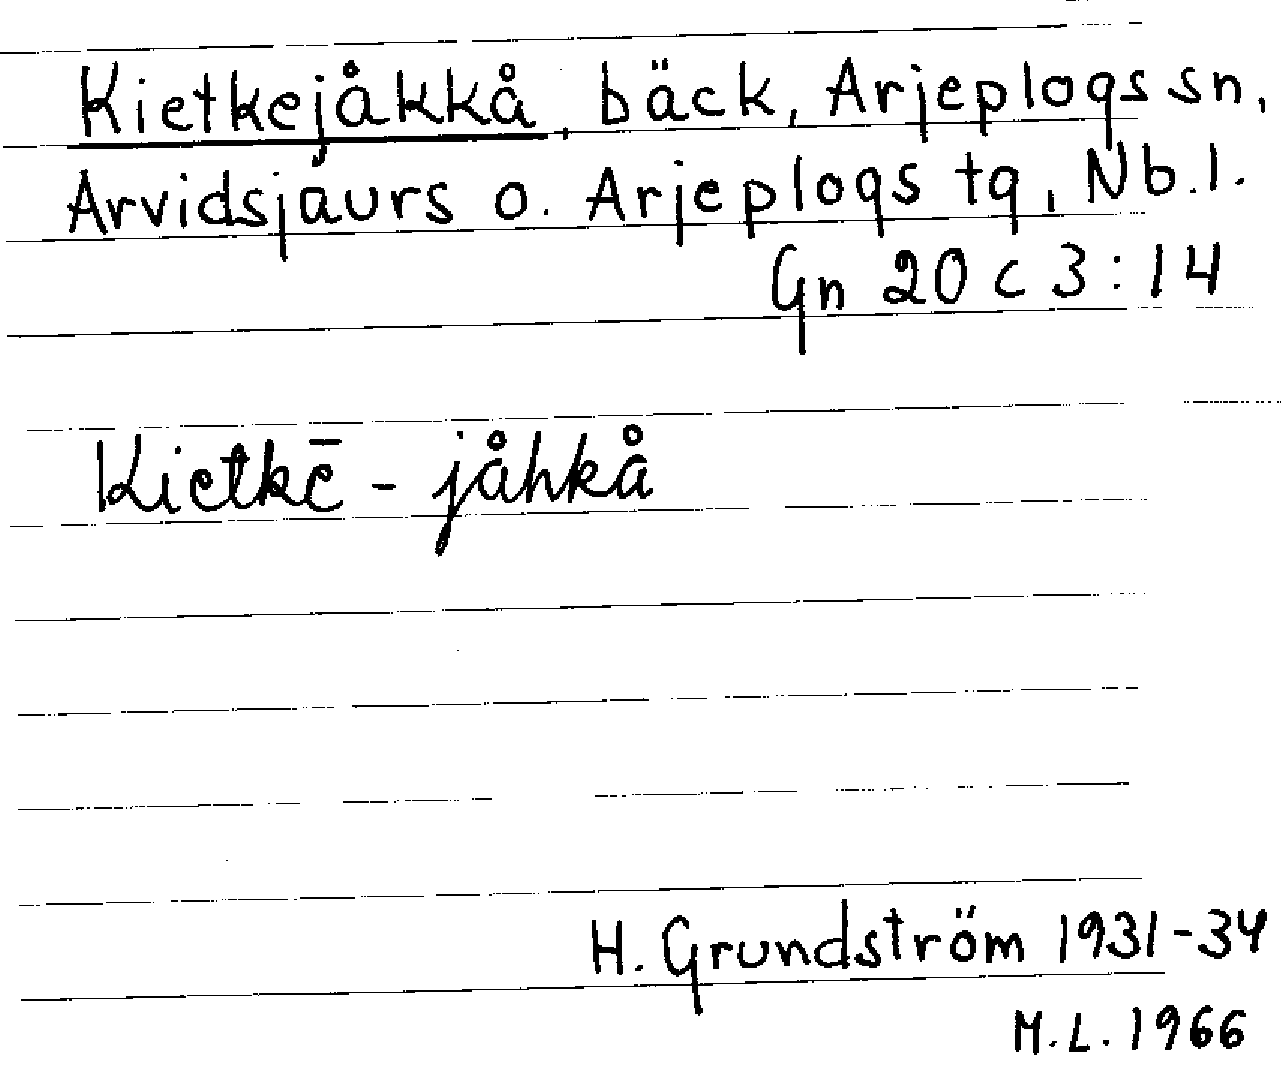 Kietkejåkkå, bäck, Arjeplogs sn,
Arvidsjaurs o. Arjeplogs tg, Nb.l.
Gn 20 c 3:14
Kietkē - jåhkå
H. Grundström 1931-34
M.L. 1966